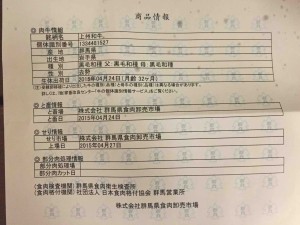 商品情報
◎ 肉牛情報
銘柄名 上州和牛
個体識別番号 1384461527
産地 群馬県
出生地 岩手県
種別 黒毛和種 父:黒毛和種 母:黒毛和種
性別 去勢
◎ 上場情報
上場者 株式会社 群馬県食肉卸売市場
上場日 2015年04月24日
◎ せり情報
せり市場 株式会社 群馬県食肉卸売市場
上場日 2015年04月27日
◎ 部分肉処理情報
部分肉処理場
部分肉カット日
(食肉検査機関) 群馬県食肉衛生検査所
(食肉格付機関) 社団法人 日本食肉格付協会 群馬営業所
株式会社群馬県食肉卸売市場